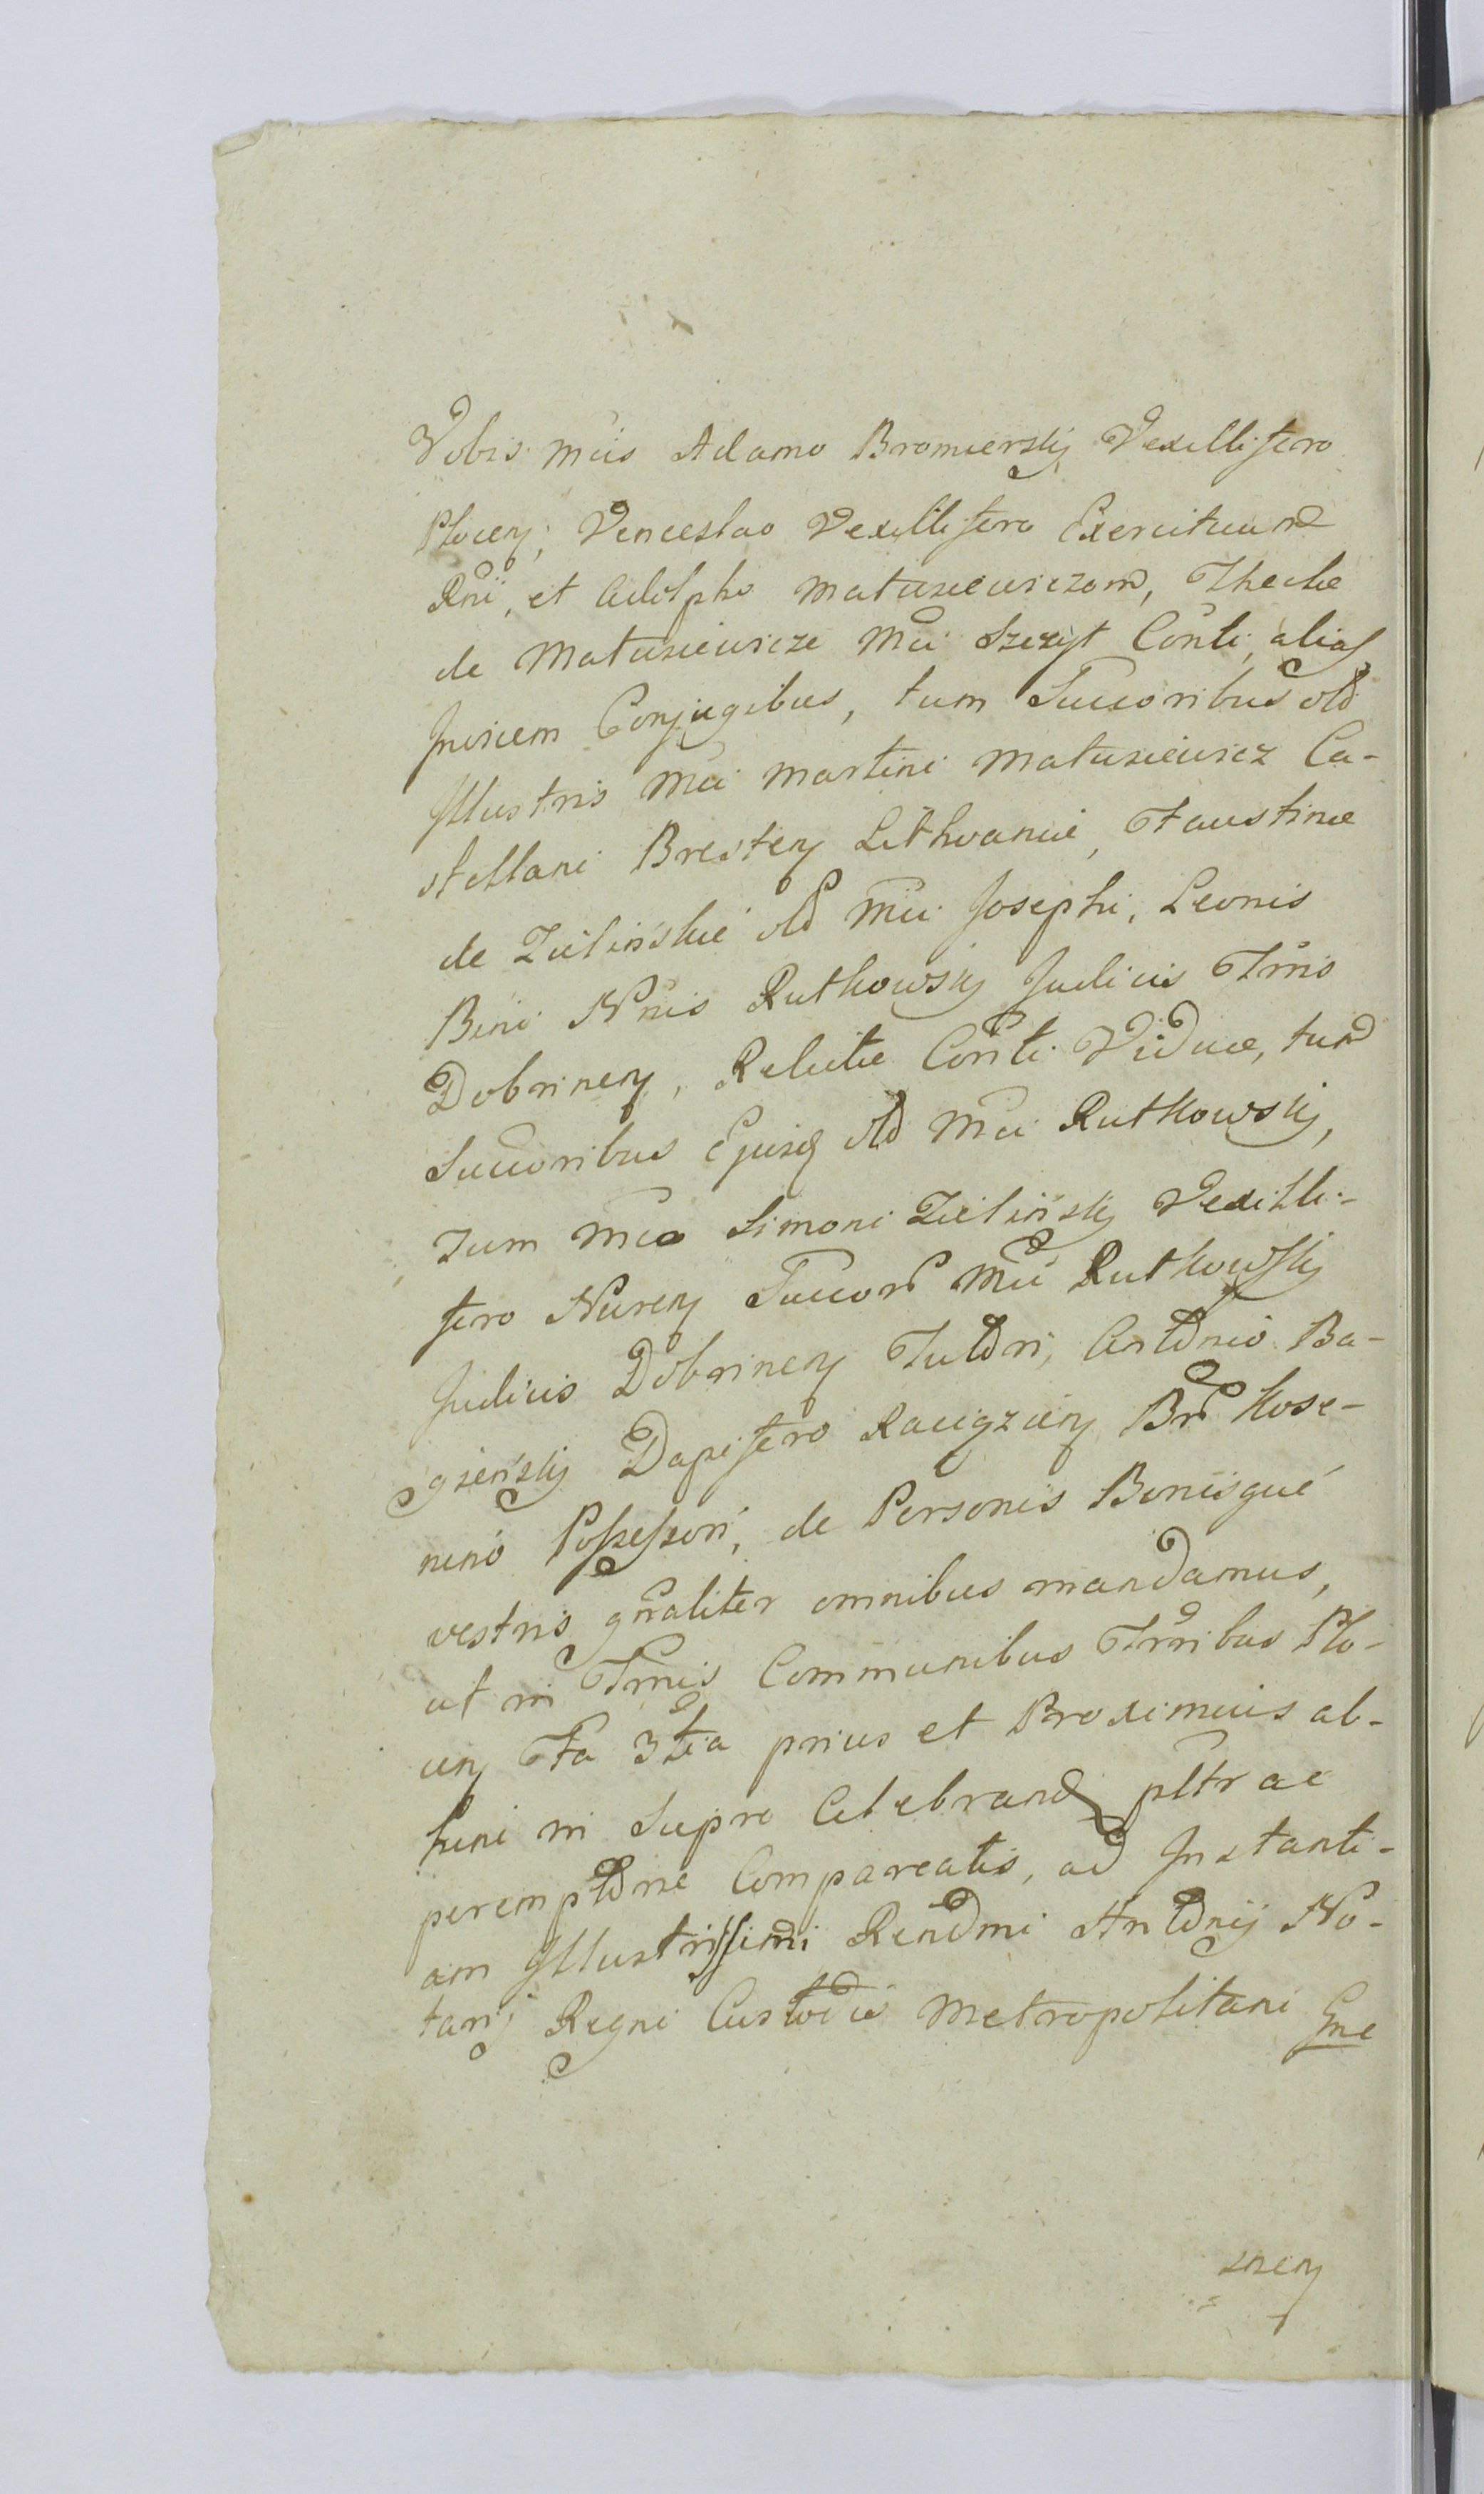 Vobis Mcis Adamo Bromierskij Vexillifero
Plocen, Venceslao Vexillifero Exercituum
Rni, et Adolpho Matusiewiczom, Theclæ
de Matusiewicze Mci Szczyt Conti, alias
Invicem Conjugibus, tum Succoribus olb
Illustris Mci Martini Matusiewicz Ca-
stellani Bresten Lithvaniæ, Faustinæ
de Zielińskie olb Mci Josephi, Leonis
Bini Nnis Rutkowskij Judicis Trris
Dobrinen, Relictæ Conti Viduæ, tum
Succoribus Ejusq olb Mci Rutkowskij,
Tum Mco Simoni Zielińskij Vexilli-
fero Nuren Succor Mci Rutkowskij
Judicis Dobrinen Tutori, Antonio Ba-
gieńskij Dapifero Raciązien Br Kose-
mino Possessori, de Personis Bonisque
vestris gnraliter omnibus mandamus,
ut in Trmis Communibus Trribus Plo-
cen Fa 3tia prius et Proximius ab-
hinc in Supro Celebrand pltr ac
peremptorie Compareatis, ad Instanti-
am Illustrissimi Rendmi Antonij No-
tarij Regni Custodis Metropolitani Gne
snen